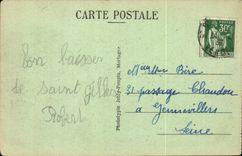 CARTE POSTALE
30c
Bon baiser
de Saint Gilles
Robert
Phototypie Jolly-Poupin, Mortagne
31 passage Chandon
à Gennevilliers
Seine